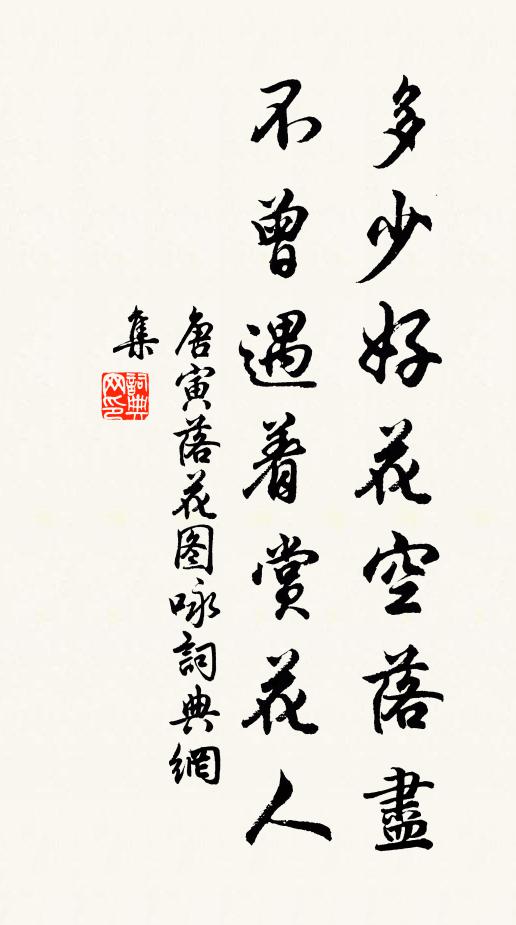 多少好花空落盡
不曾遇着賞花人
唐寅落花图咏詞典網
集
詞典
网印